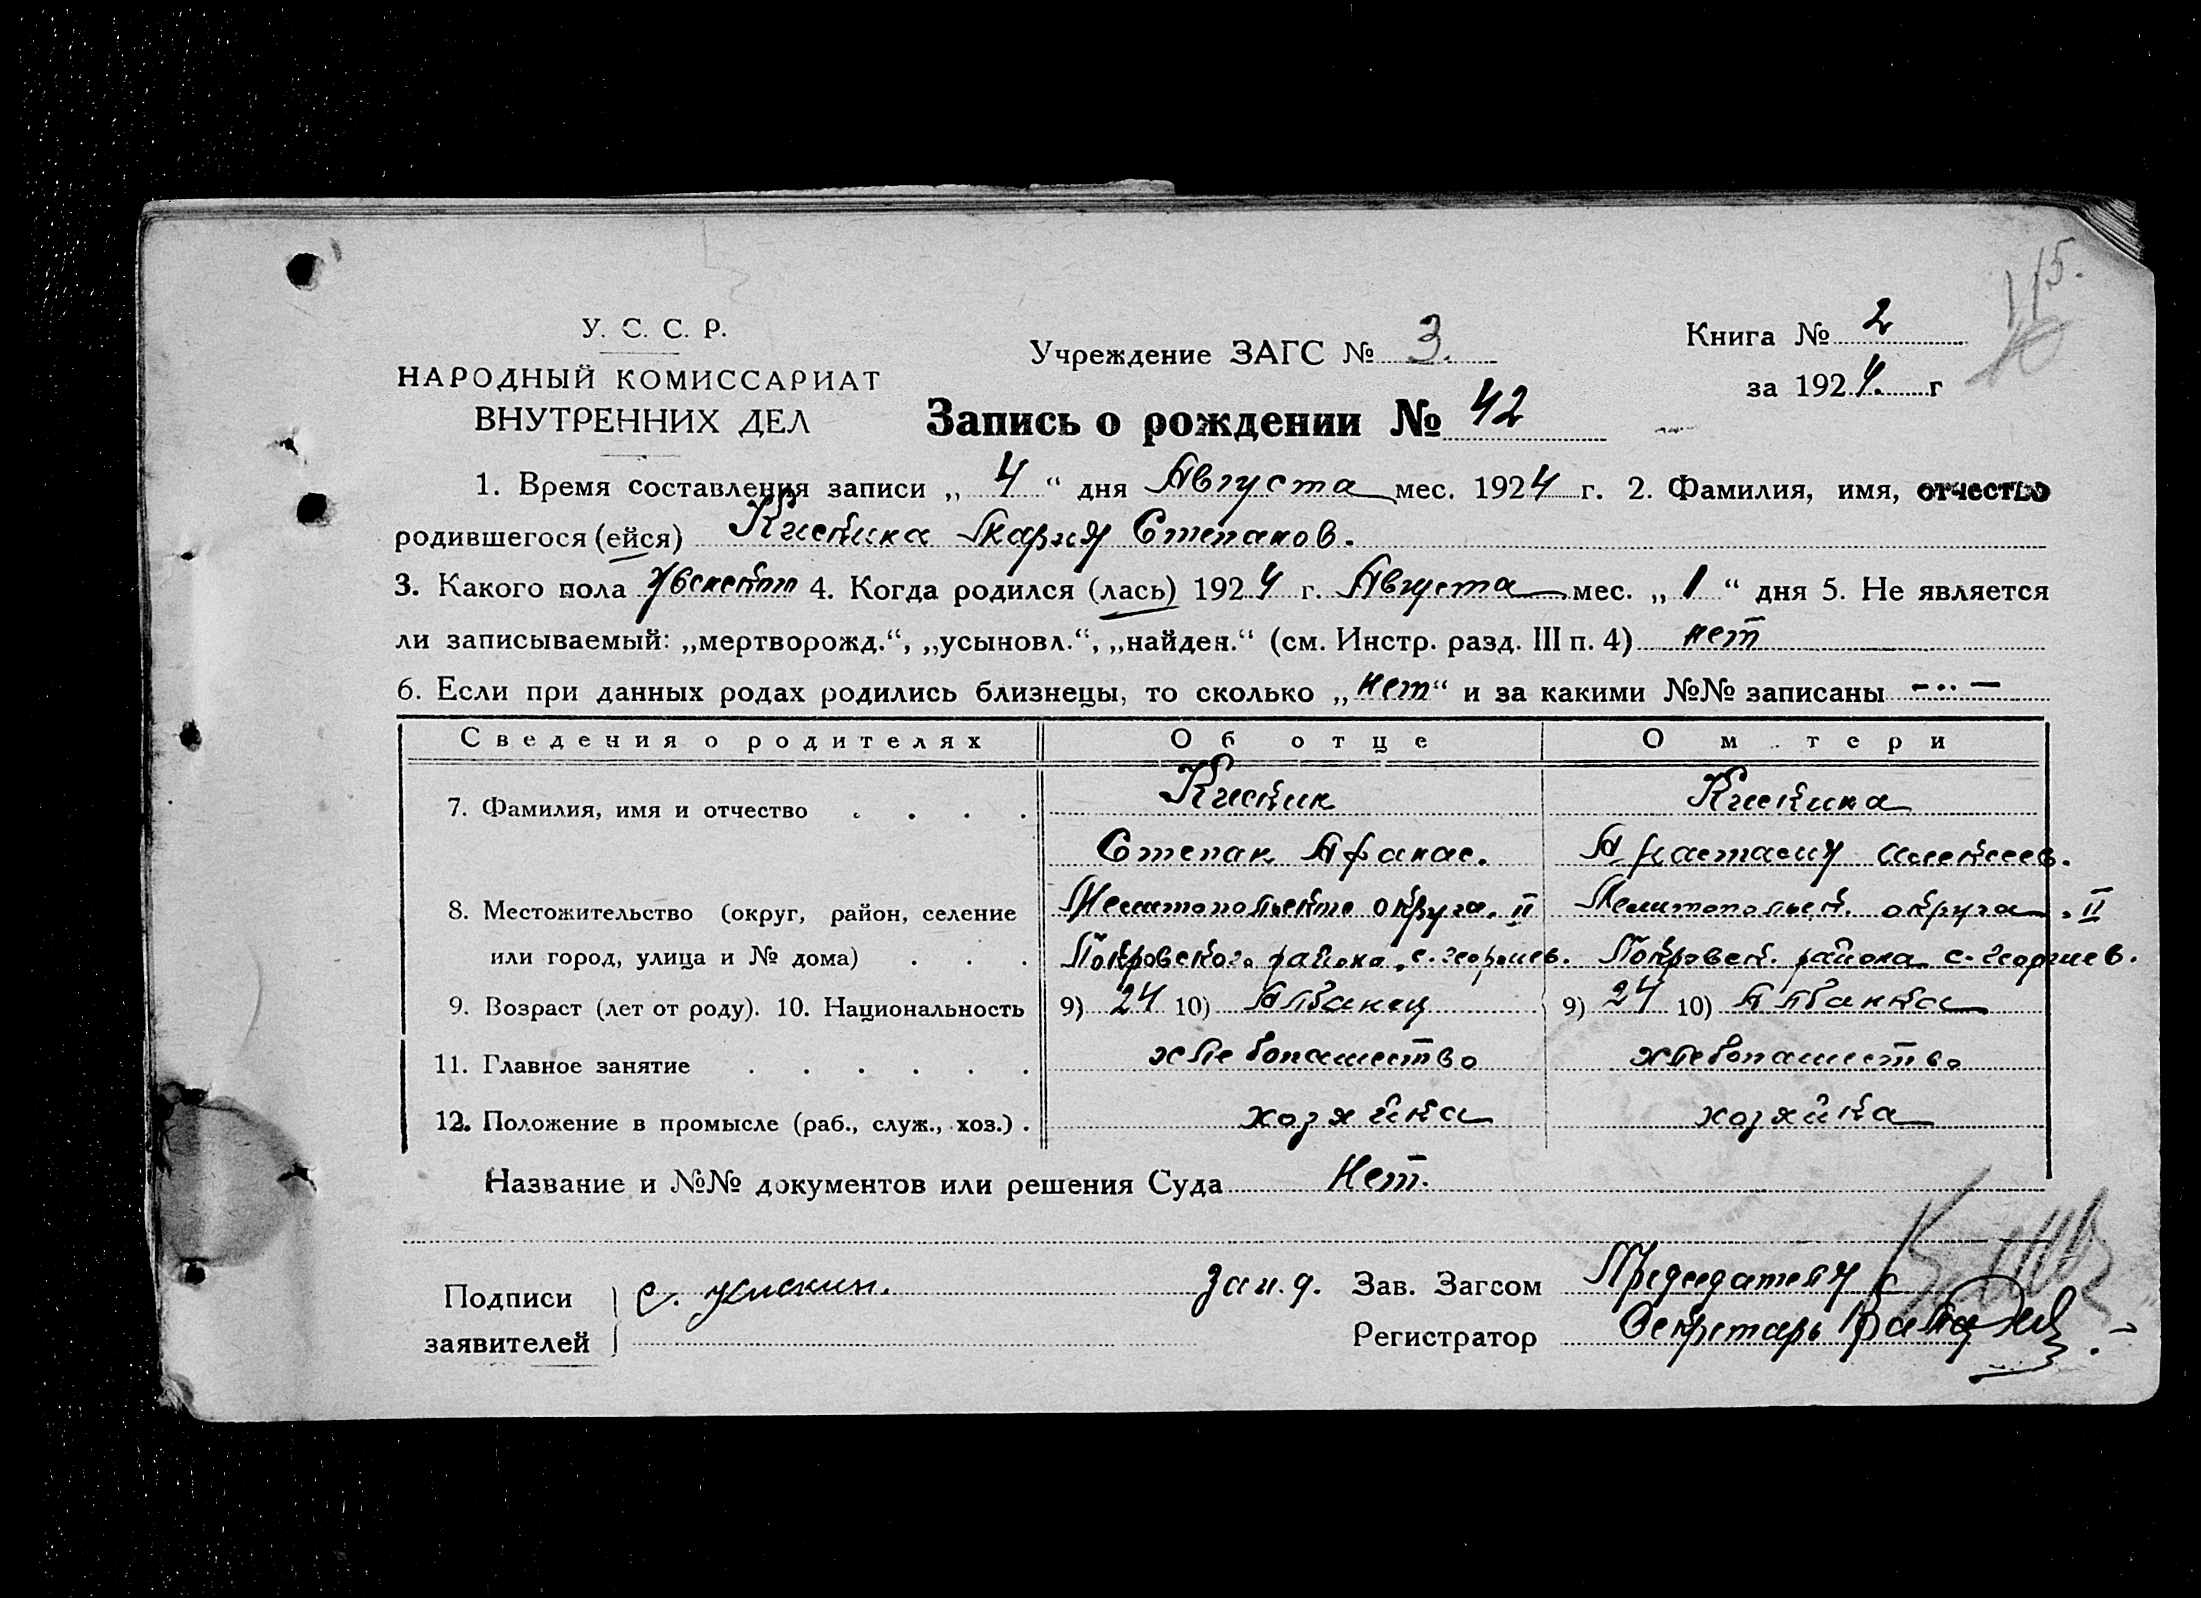 115.
У. С. С. Р.
НАРОДНЫЙ КОМИССАРИАТ
ВНУТРЕННИХ ДЕЛ
Учреждение ЗАГС № 3.
Книга № 2
за 1924. г
Запись о рождении № 42
1. Время составления записи „ 4 “ дня Августа мес. 1924 г. 2. Фамилия, имя, отчество
родившегося (ейся) Мария Степанов.
3. Какого пола женского 4. Когда родился (лась) 1924 г. Августа мес. „ 1 “ дня 5. Не является
ли записываемый: „мертворожд.“, „усыновл.“, „найден.“ (см. Инстр. разд. III п. 4) нет
6. Если при данных родах родились близнецы, то сколько „нет“ и за какими №№ записаны
Сведения о родителях Об отце О м тери
7. Фамилия, имя и отчество
Степан Афанас. Анастасия Алексеев.
8. Местожительство (округ, район, селение Мелитопольского округа. II Мелитопольск. округа. II
или город, улица и № дома) Покровского района, с. Георгиев. Покровск. района с. Георгиев.
9. Возраст (лет от роду). 10. Национальность 9) 24 10) Албанец 9) 24 10) Албанка
11. Главное занятие хлебопашество хлебопашество
12. Положение в промысле (раб., служ., хоз.) хозяйка хозяйка
Название и №№ документов или решения Суда Нет.
Подписи
заявителей
Зав. Загсом Председатель с
Регистратор Секретарь